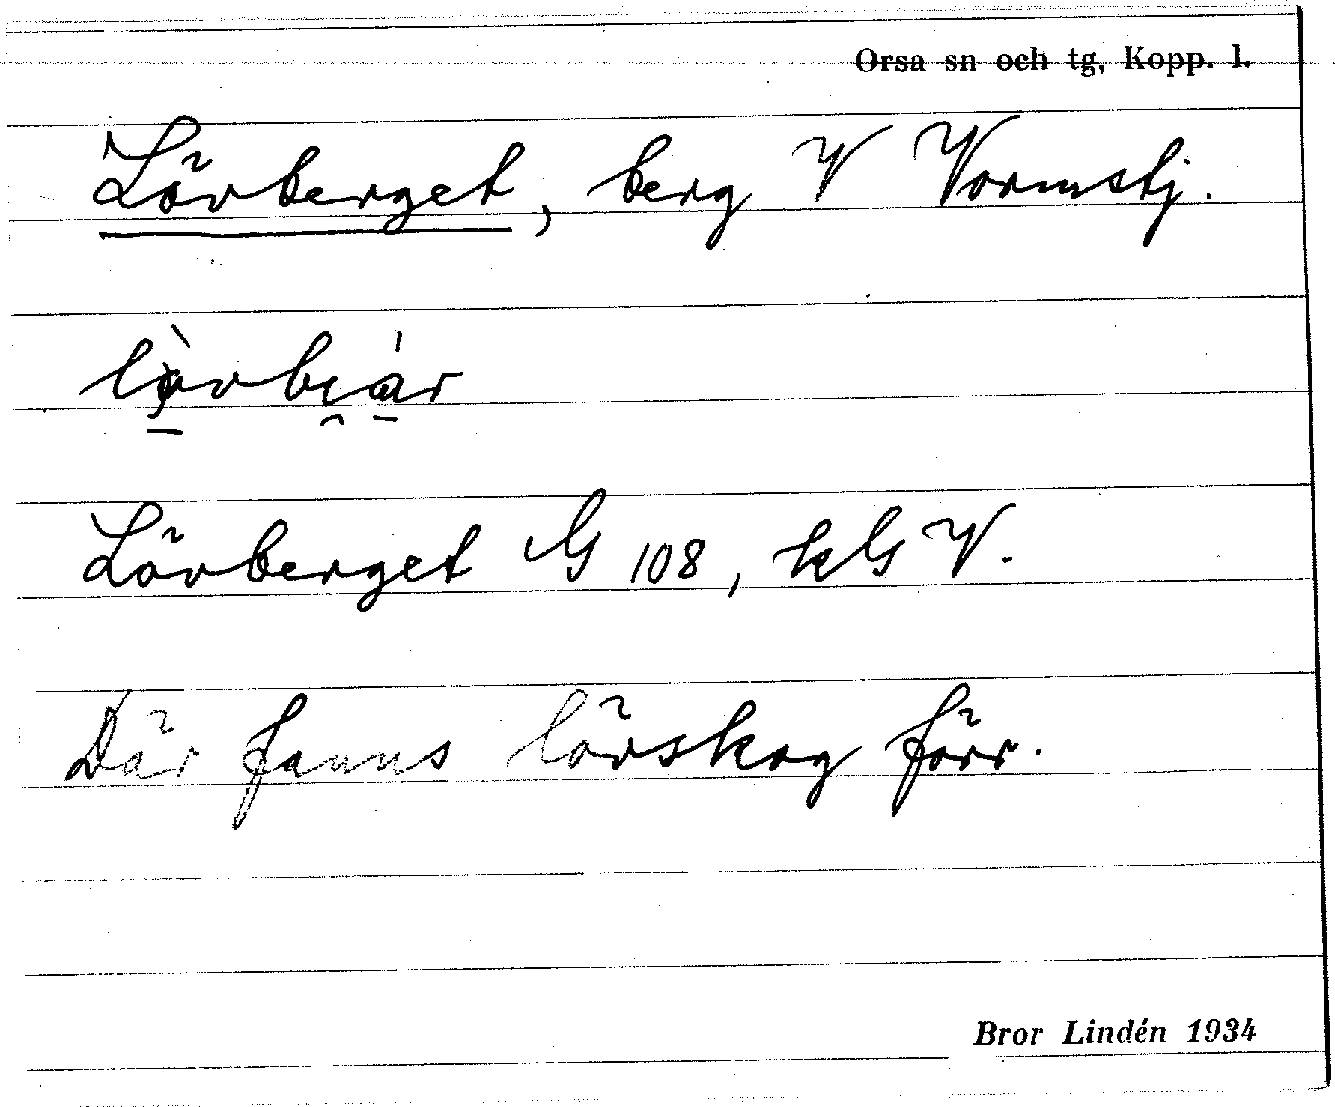 Orsa sn och tg, Kopp. l.
Lövberget, berg V Vormstj.
Lövberget G 108, kG V.
Där fanns lövskog förr.
Bror Lindén 1934